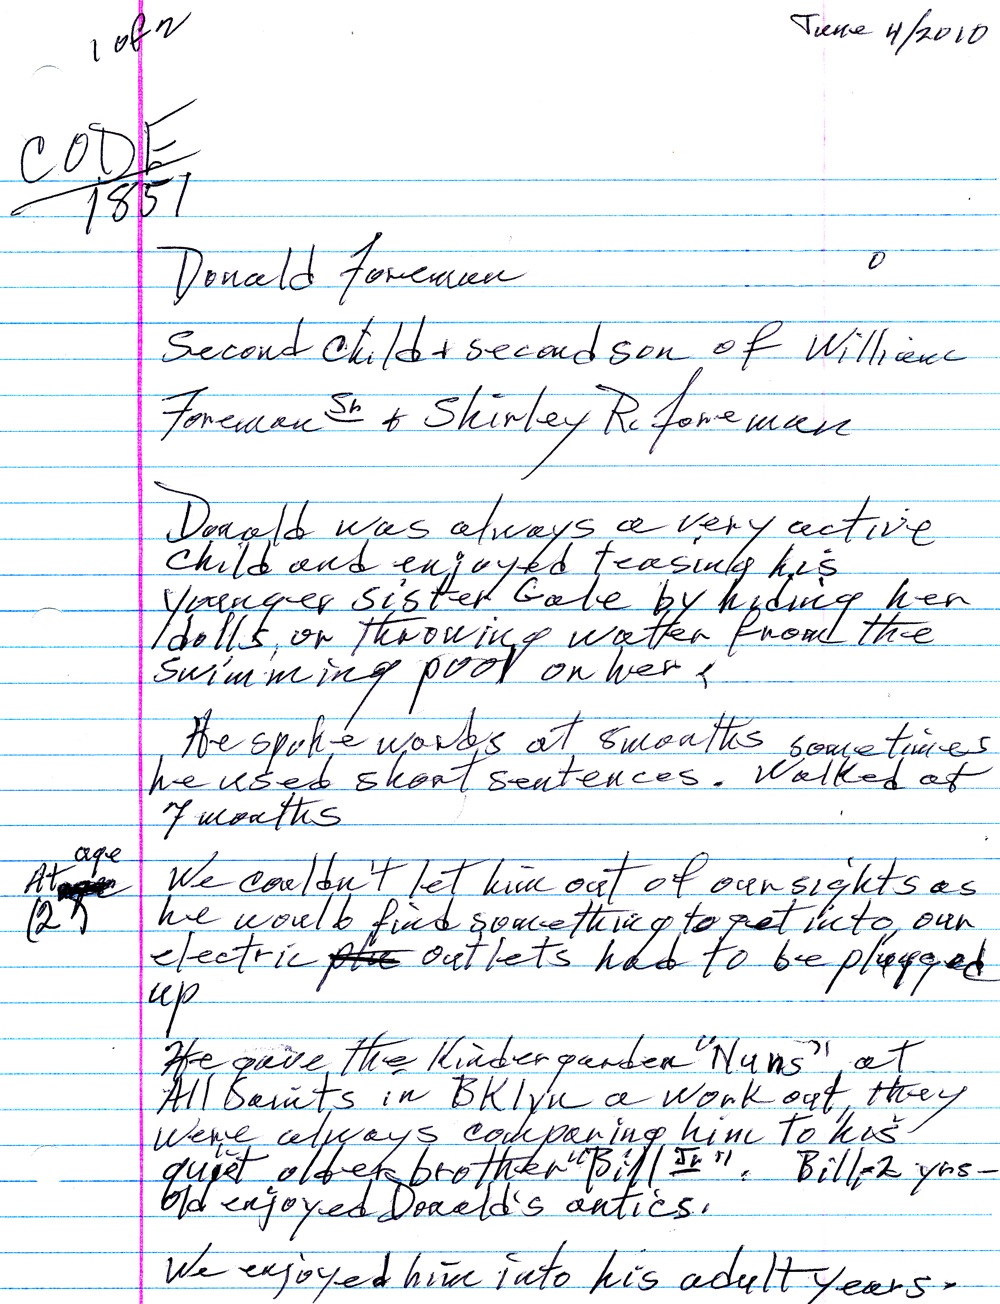 1 of 2
June 4/2010
CODE
1851
Donald Foreman
Second Child & second son of William
Foreman Sr & Shirley R. Foreman
Donald was always a very active
child and enjoyed teasing his
younger sister Gale by hiding her
dolls, or throwing watter from the
swimming pool on her.
He spoke words at 8 months sometimes
he used short sentences. Walked at
7 months
At age
(2)
We couldn't let him out of our sights as
he would find something to get into, our
electric outlets had to be plugged
up
He gave the Kindergarden "Nuns" at
All Saints in BKlyn a work out, they
were always comparing him to his
quiet older brother "Bill Jr". Bill, 2 yrs-
old enjoyed Donald's antics.
We enjoyed him into his adult years.